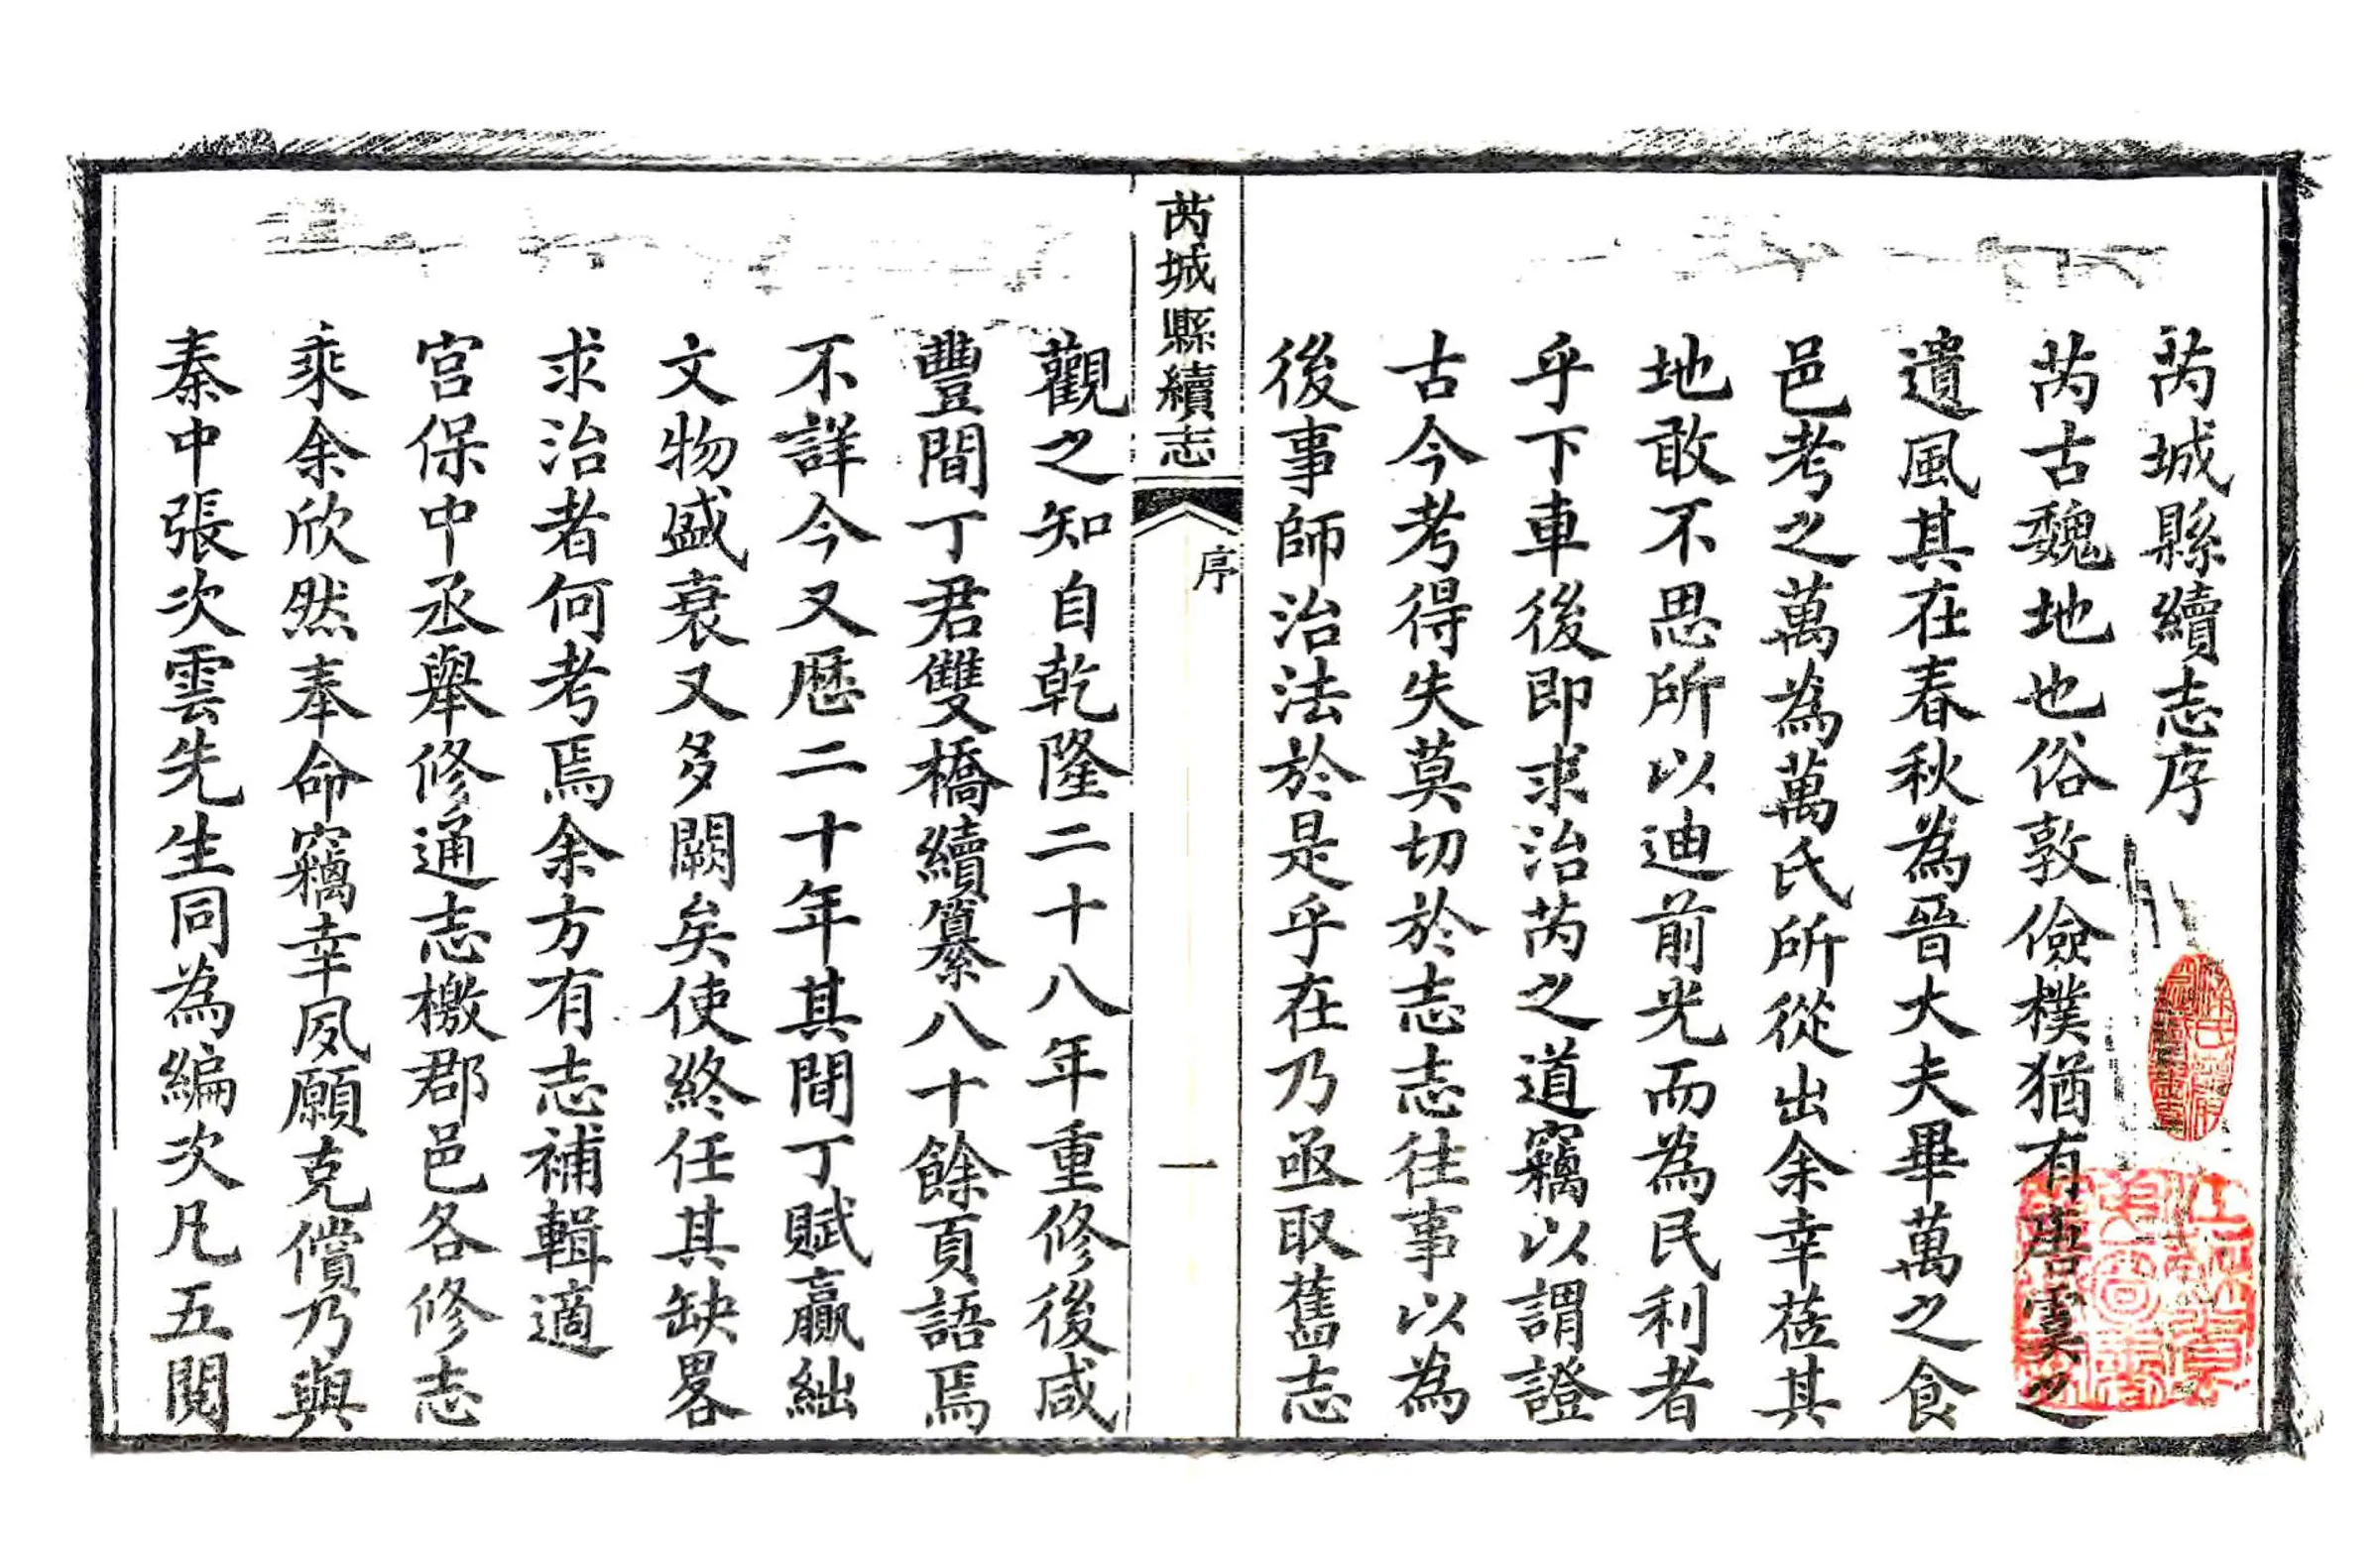 芮城縣續志序
芮古魏地也俗敦儉樸猶有唐虞之
遺風其在春秋為晉大夫畢萬之食
邑考之萬為萬氏所從出余幸莅其
地敢不思所以迪前光而為民利者
乎下車後即求治芮之道竊以謂證
古今考得失莫切於志志往事以為
後事師治法於是乎在乃亟取舊志
芮城縣續志
序
一
觀之知自乾隆二十八年重修後咸
豐間丁君雙橋續纂八十餘頁語焉
不詳今又歷二十年其間丁賦贏絀
文物盛衰又多闕矣使終任其缺畧
求治者何考焉余方有志補輯適
宫保中丞舉修通志檄郡邑各修志
乘余欣然奉命竊幸夙願克償乃與
秦中張次雲先生同為編次凡五閱